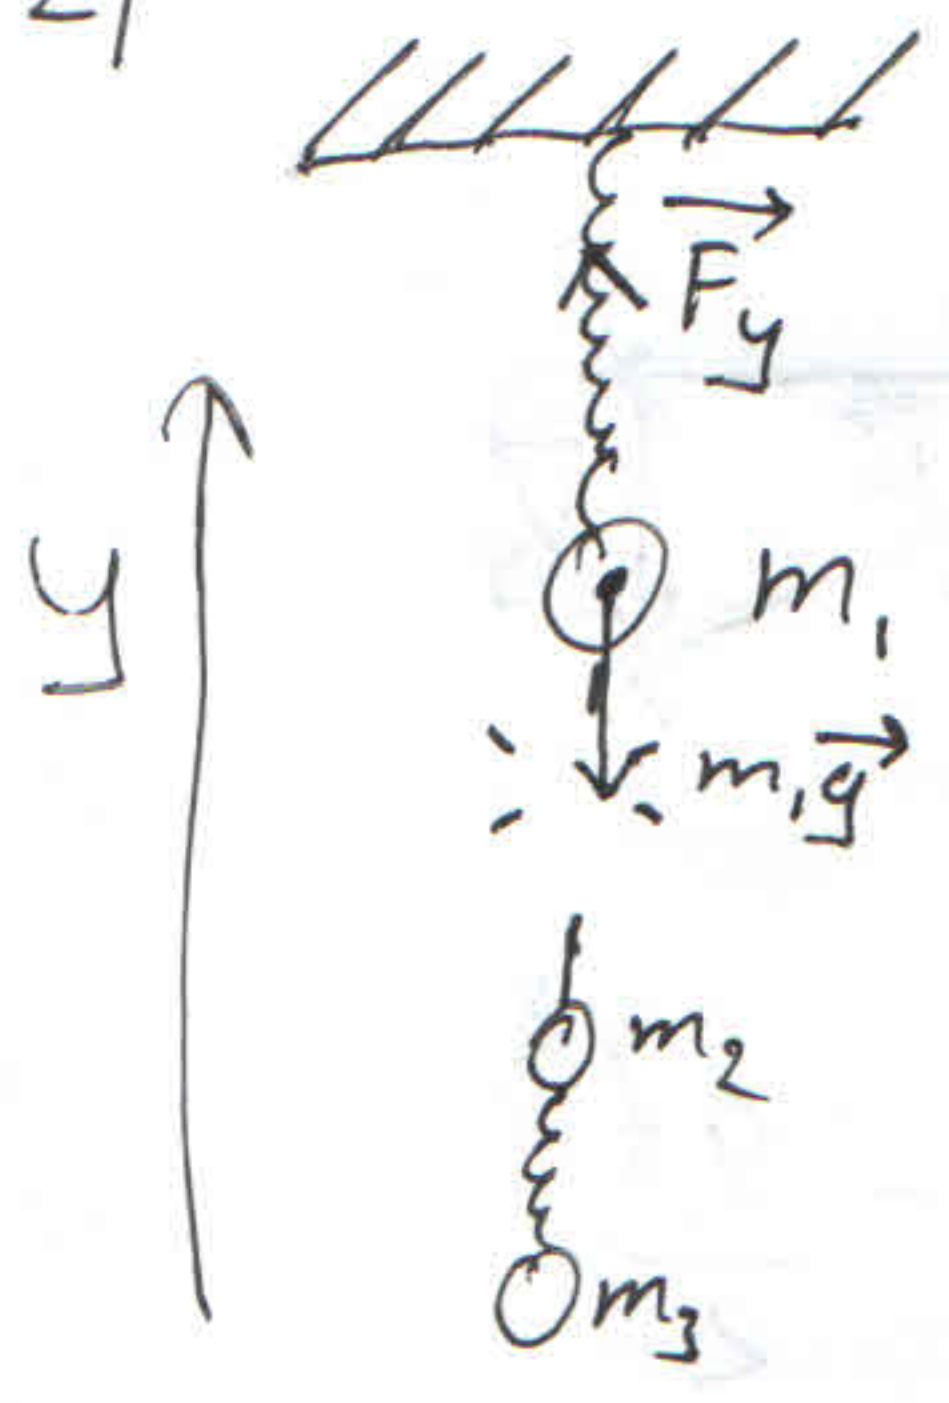 2)
F⃗y
y
m₁
m₁g⃗
m₂
m₃